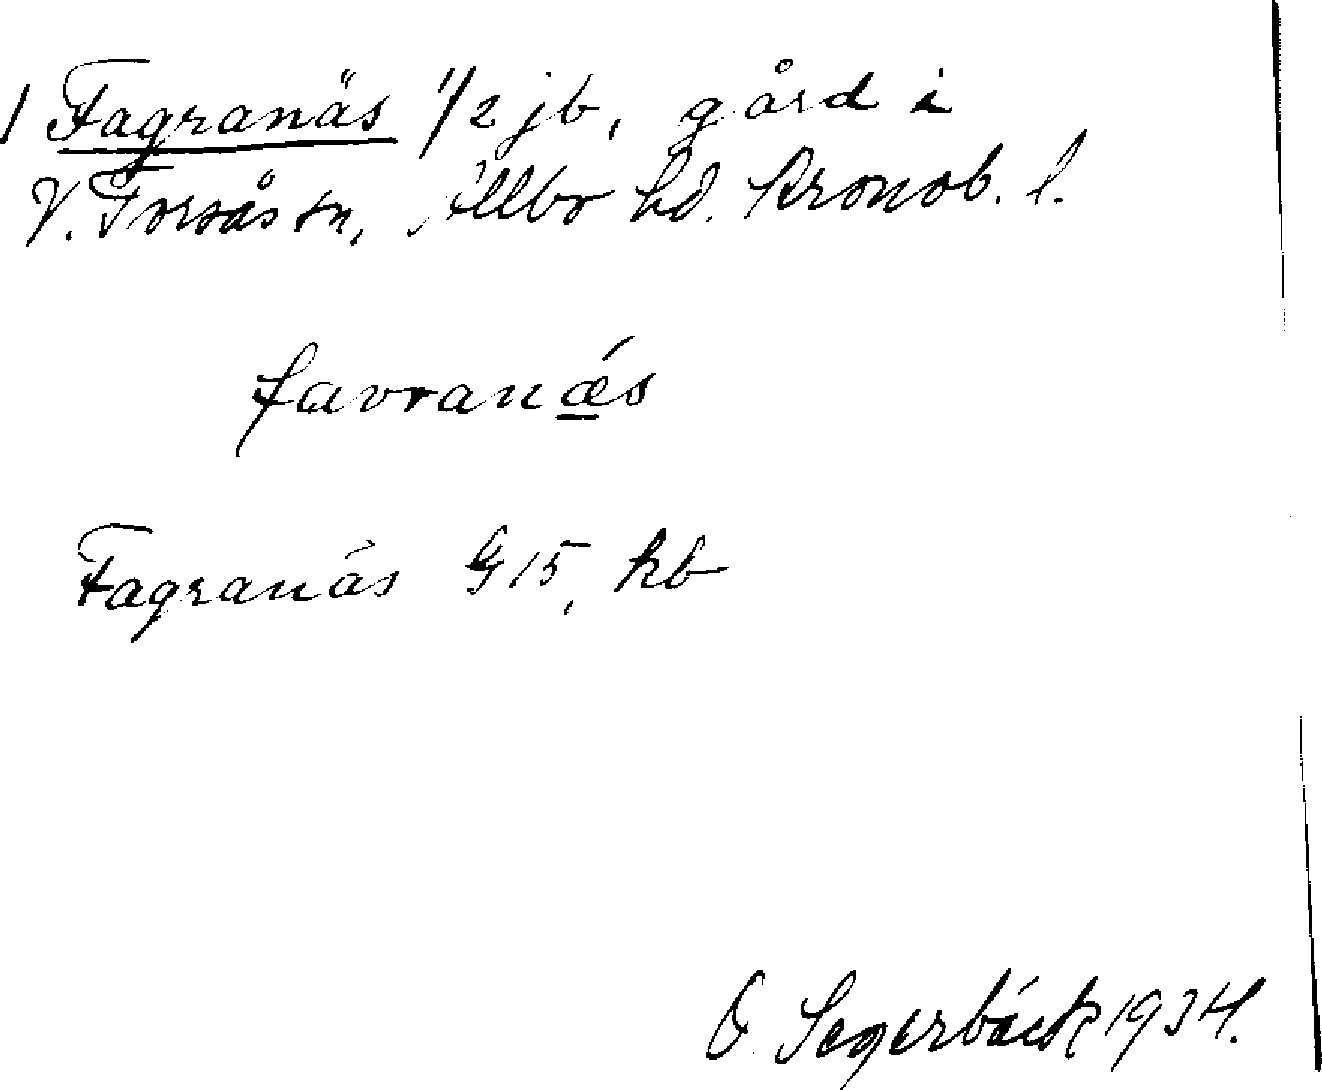 1 Fagranäs 1/2 jb, gård i
V. Torsås sn, Allbo hd. Kronob. l.
favranǽs
Fagranäs G 15, kb
O. Segerbäck 1934.